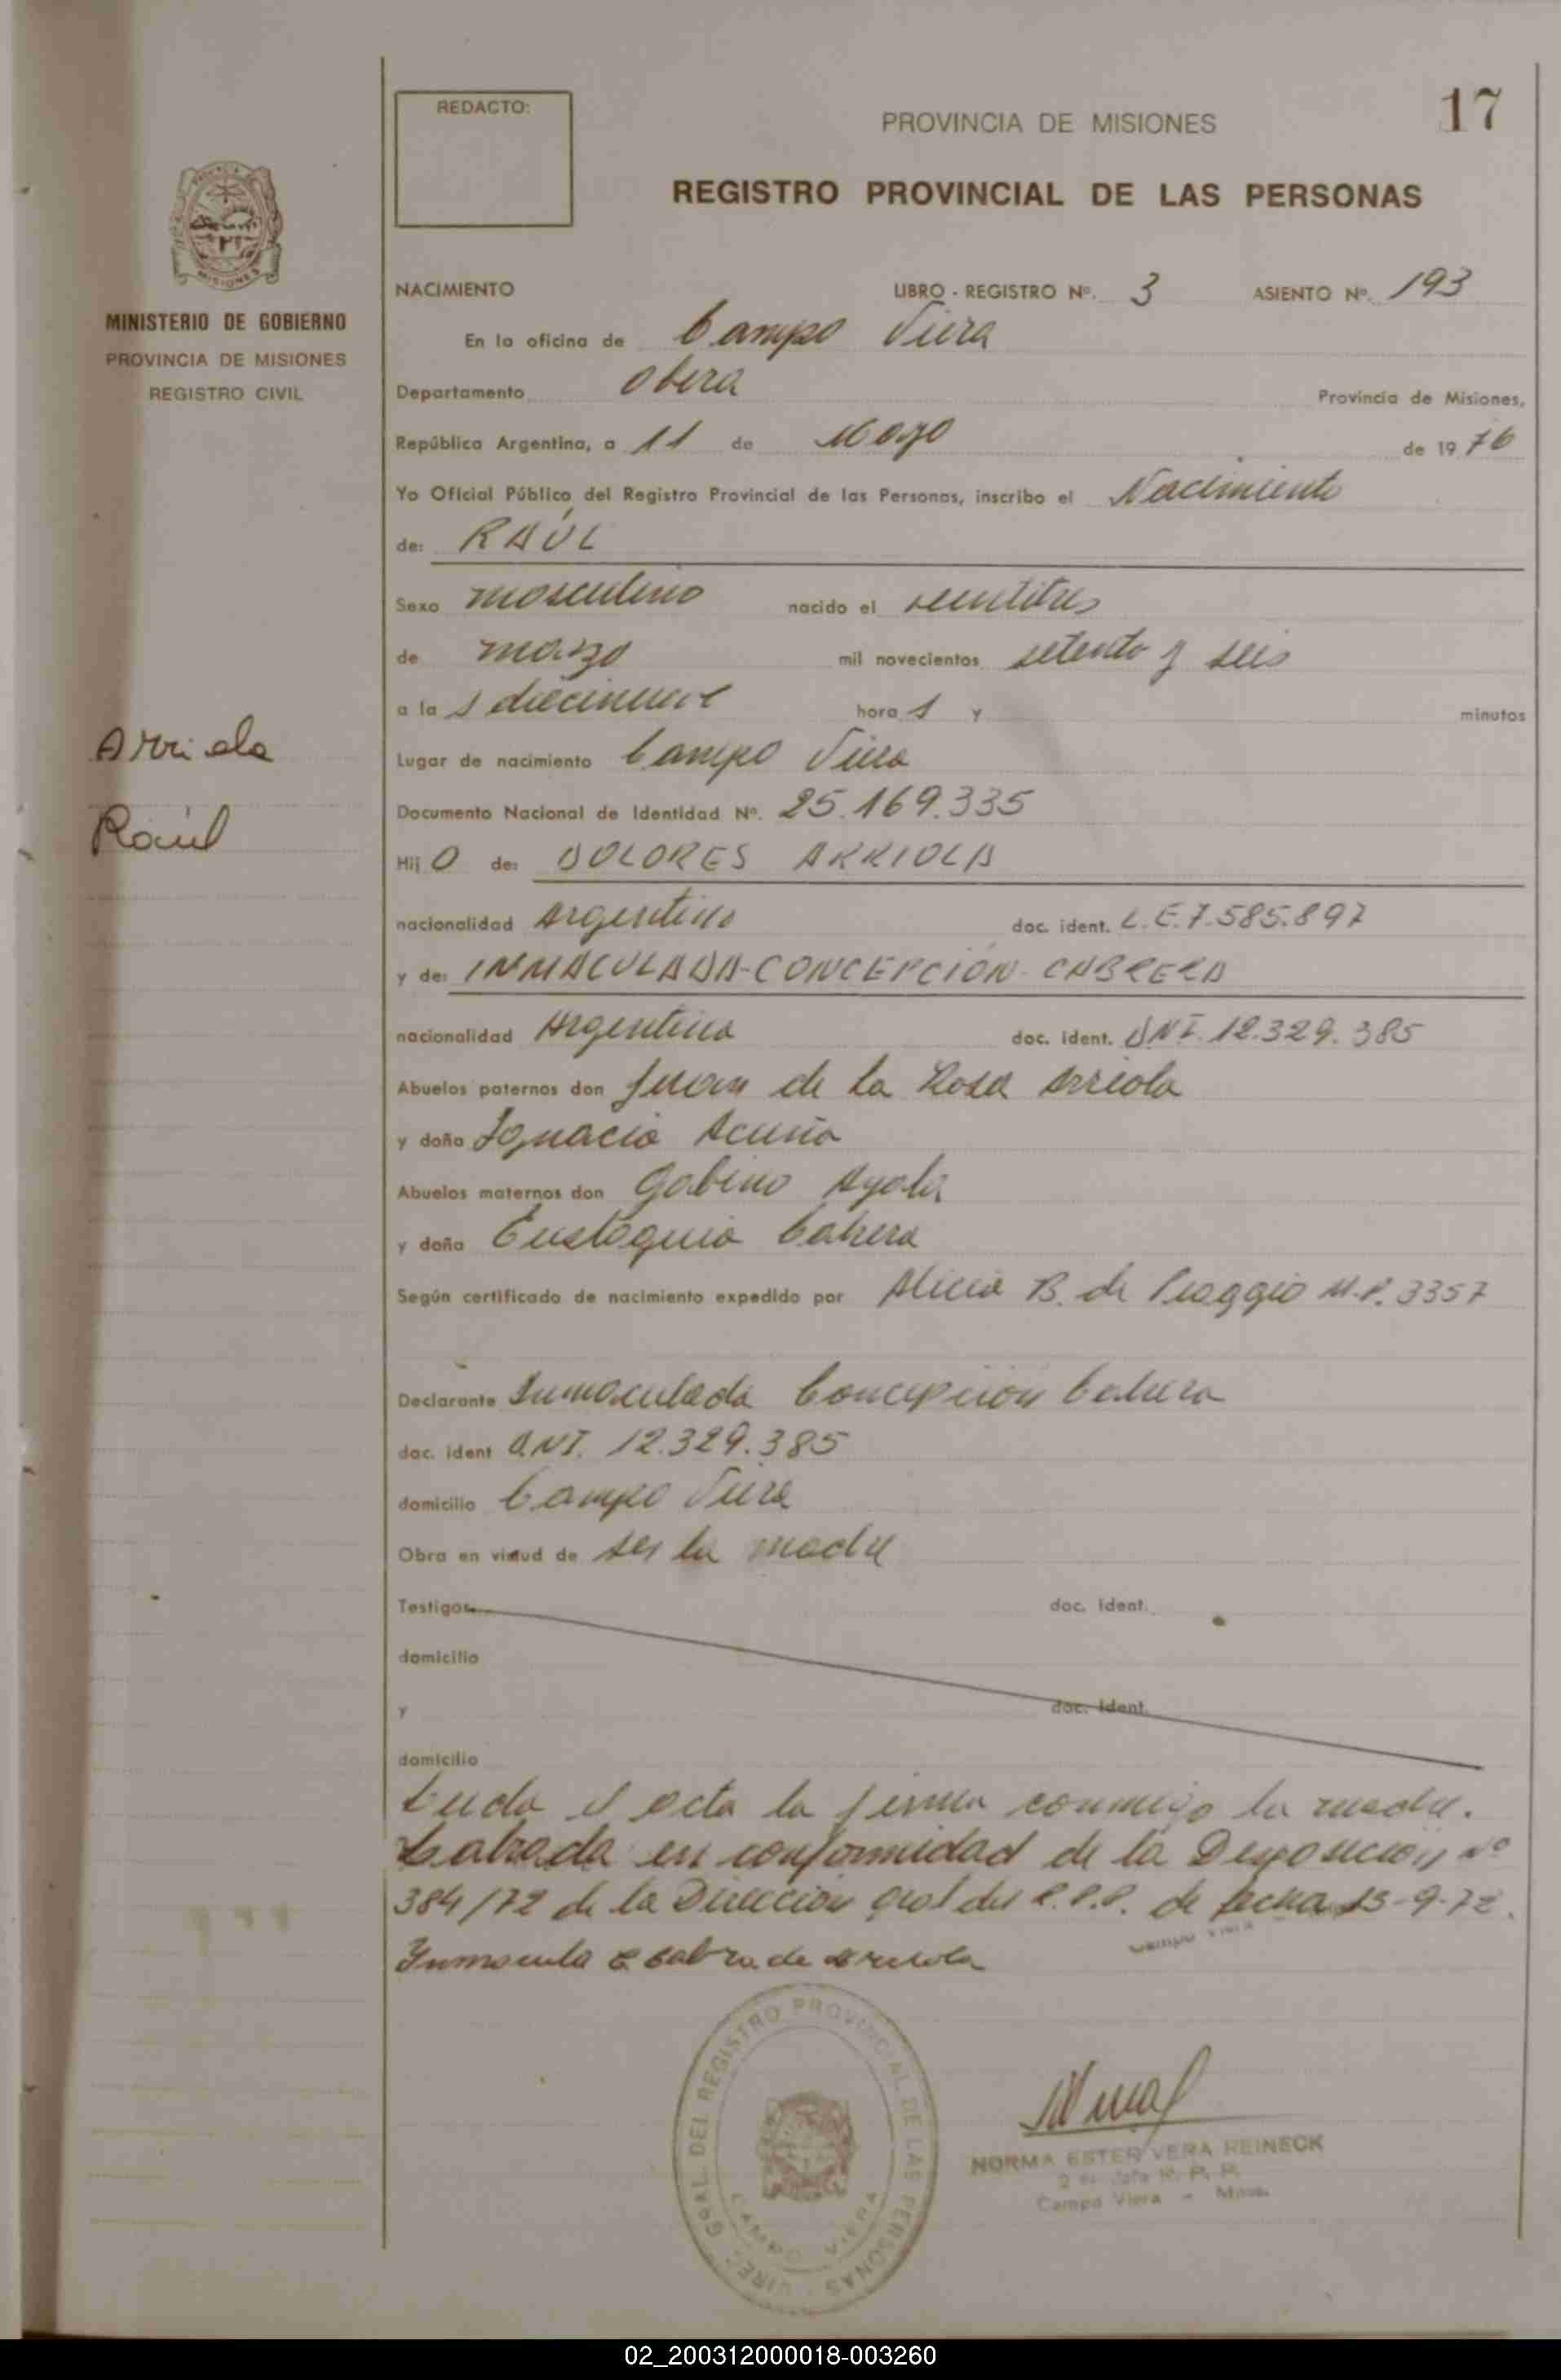 REDACTO:
PROVINCIA DE MISIONES
17
REGISTRO PROVINCIAL DE LAS PERSONAS
MINISTERIO DE GOBIERNO
PROVINCIA DE MISIONES
REGISTRO CIVIL
NACIMIENTO LIBRO - REGISTRO Nº. 3 ASIENTO Nº. 193
En la oficina de Campo Viera
Departamento Obera Provincia de Misiones,
República Argentina, a 11 de Mayo de 1976
Yo Oficial Público del Registro Provincial de las Personas, inscribo el Nacimiento
de: RAÚL
Sexo masculino nacido el veintitres
de marzo mil novecientos setenta y seis
a las diecinueve horas y minutos
Arriola
Raúl
Lugar de nacimiento Campo Viera
Documento Nacional de Identidad Nº. 25.169.335
Hijo de: DOLORES ARRIOLA
nacionalidad Argentino doc. ident. L.E.7.585.897
y de: INMACULADA-CONCEPCIÓN-CABRERA
nacionalidad Argentina doc. ident. DNI.12.329.385
Abuelos paternos don Juan de la Rosa Arriola
y doña Ignacia Acuña
Abuelos maternos don Gabino Ayala
y doña Eustaquia Cabrera
Según certificado de nacimiento expedido por Alicia B. de Piaggio M.P. 3357
Declarante Inmaculada Concepción Cabrera
doc. ident D.NI. 12.329.385
domicilio Campo Viera
Obra en virtud de ser la madre
Testigos doc. ident.
domicilio
y doc. ident.
domicilio
Leida el acta la firma conmigo la madre.
Labrada en conformidad de la Disposicion Nº
384/72 de la Dirección gral del R.P.P. de fecha 15-9-72.
Campo Viera
de Arriola
DIREC. GRAL. DEL REGISTRO PROVINCIAL DE LAS PERSONAS
CAMPO VIERA
NORMA ESTER VERA REINECK
Jefe R. P. P.
Campo Viera - Mnes.
02_200312000018-003260